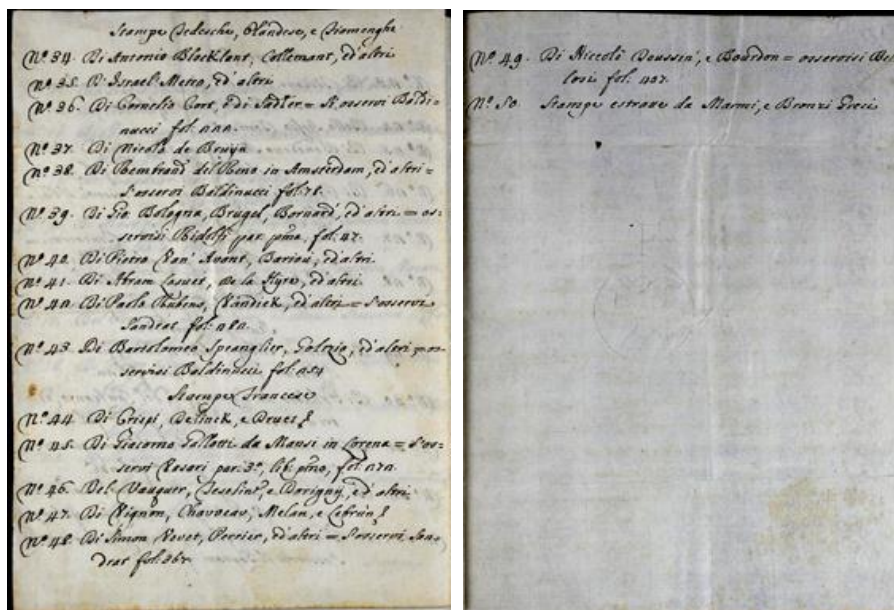 Stampe Tedesche, Olandese, e Fiamenghe
Nº 34. Di Antonio Blocklant, Collemant, ed'altri
Nº 35. D'Israel Metro, ed'altri
Nº 36. Di Cornelio Cort, e di Sadler = S'osservi Baldi=
nucci fol:
Nº 37. Di Nicola de Bruyn
Nº 38. Di Rembrand del Reno in Amsterdam, ed'altri =
S'osservi Baldinucci fol: 78.
Nº 39. Di Gio. Bologna, Brugel, Bernard, ed'altri = os=
servisi Ridolfi par. pma, fol. 47.
Nº 40. Di Pietro Van' Avont, ed'altri.
Nº 41. Di Abram de la Hyre, ed'altri.
Nº 42. Di Paolo Rubens, Vandick, ed'altri = S'osservi
Sandrat fol:
Nº 43. Di Bartolomeo Spranglier, Golzio, ed'altri = os=
servisi Baldinucci fol:
Stampe Francese
Nº 44. Di Crispi, Delinck, e
Nº 45. Di Giacomo Gallotti da Mansi in Lorena = S'os=
servi Vasari par. 3ª, lib. pmo, fol.
Nº 46. Del Vauquer, e Dorigny, ed'altri.
Nº 47. Di Vignon, Chavoeau, Melan, e Lebrun
Nº 48. Di Simon Vovet, Perrier, ed'altri = S'osservi San=
drat fol: 367.
Nº 49. Di Niccolò Poussin', e Bourdon = osservisi Bel
lori fol. 407.
Nº 50. Stampe estratte da Marmi, e Bronzi Greci